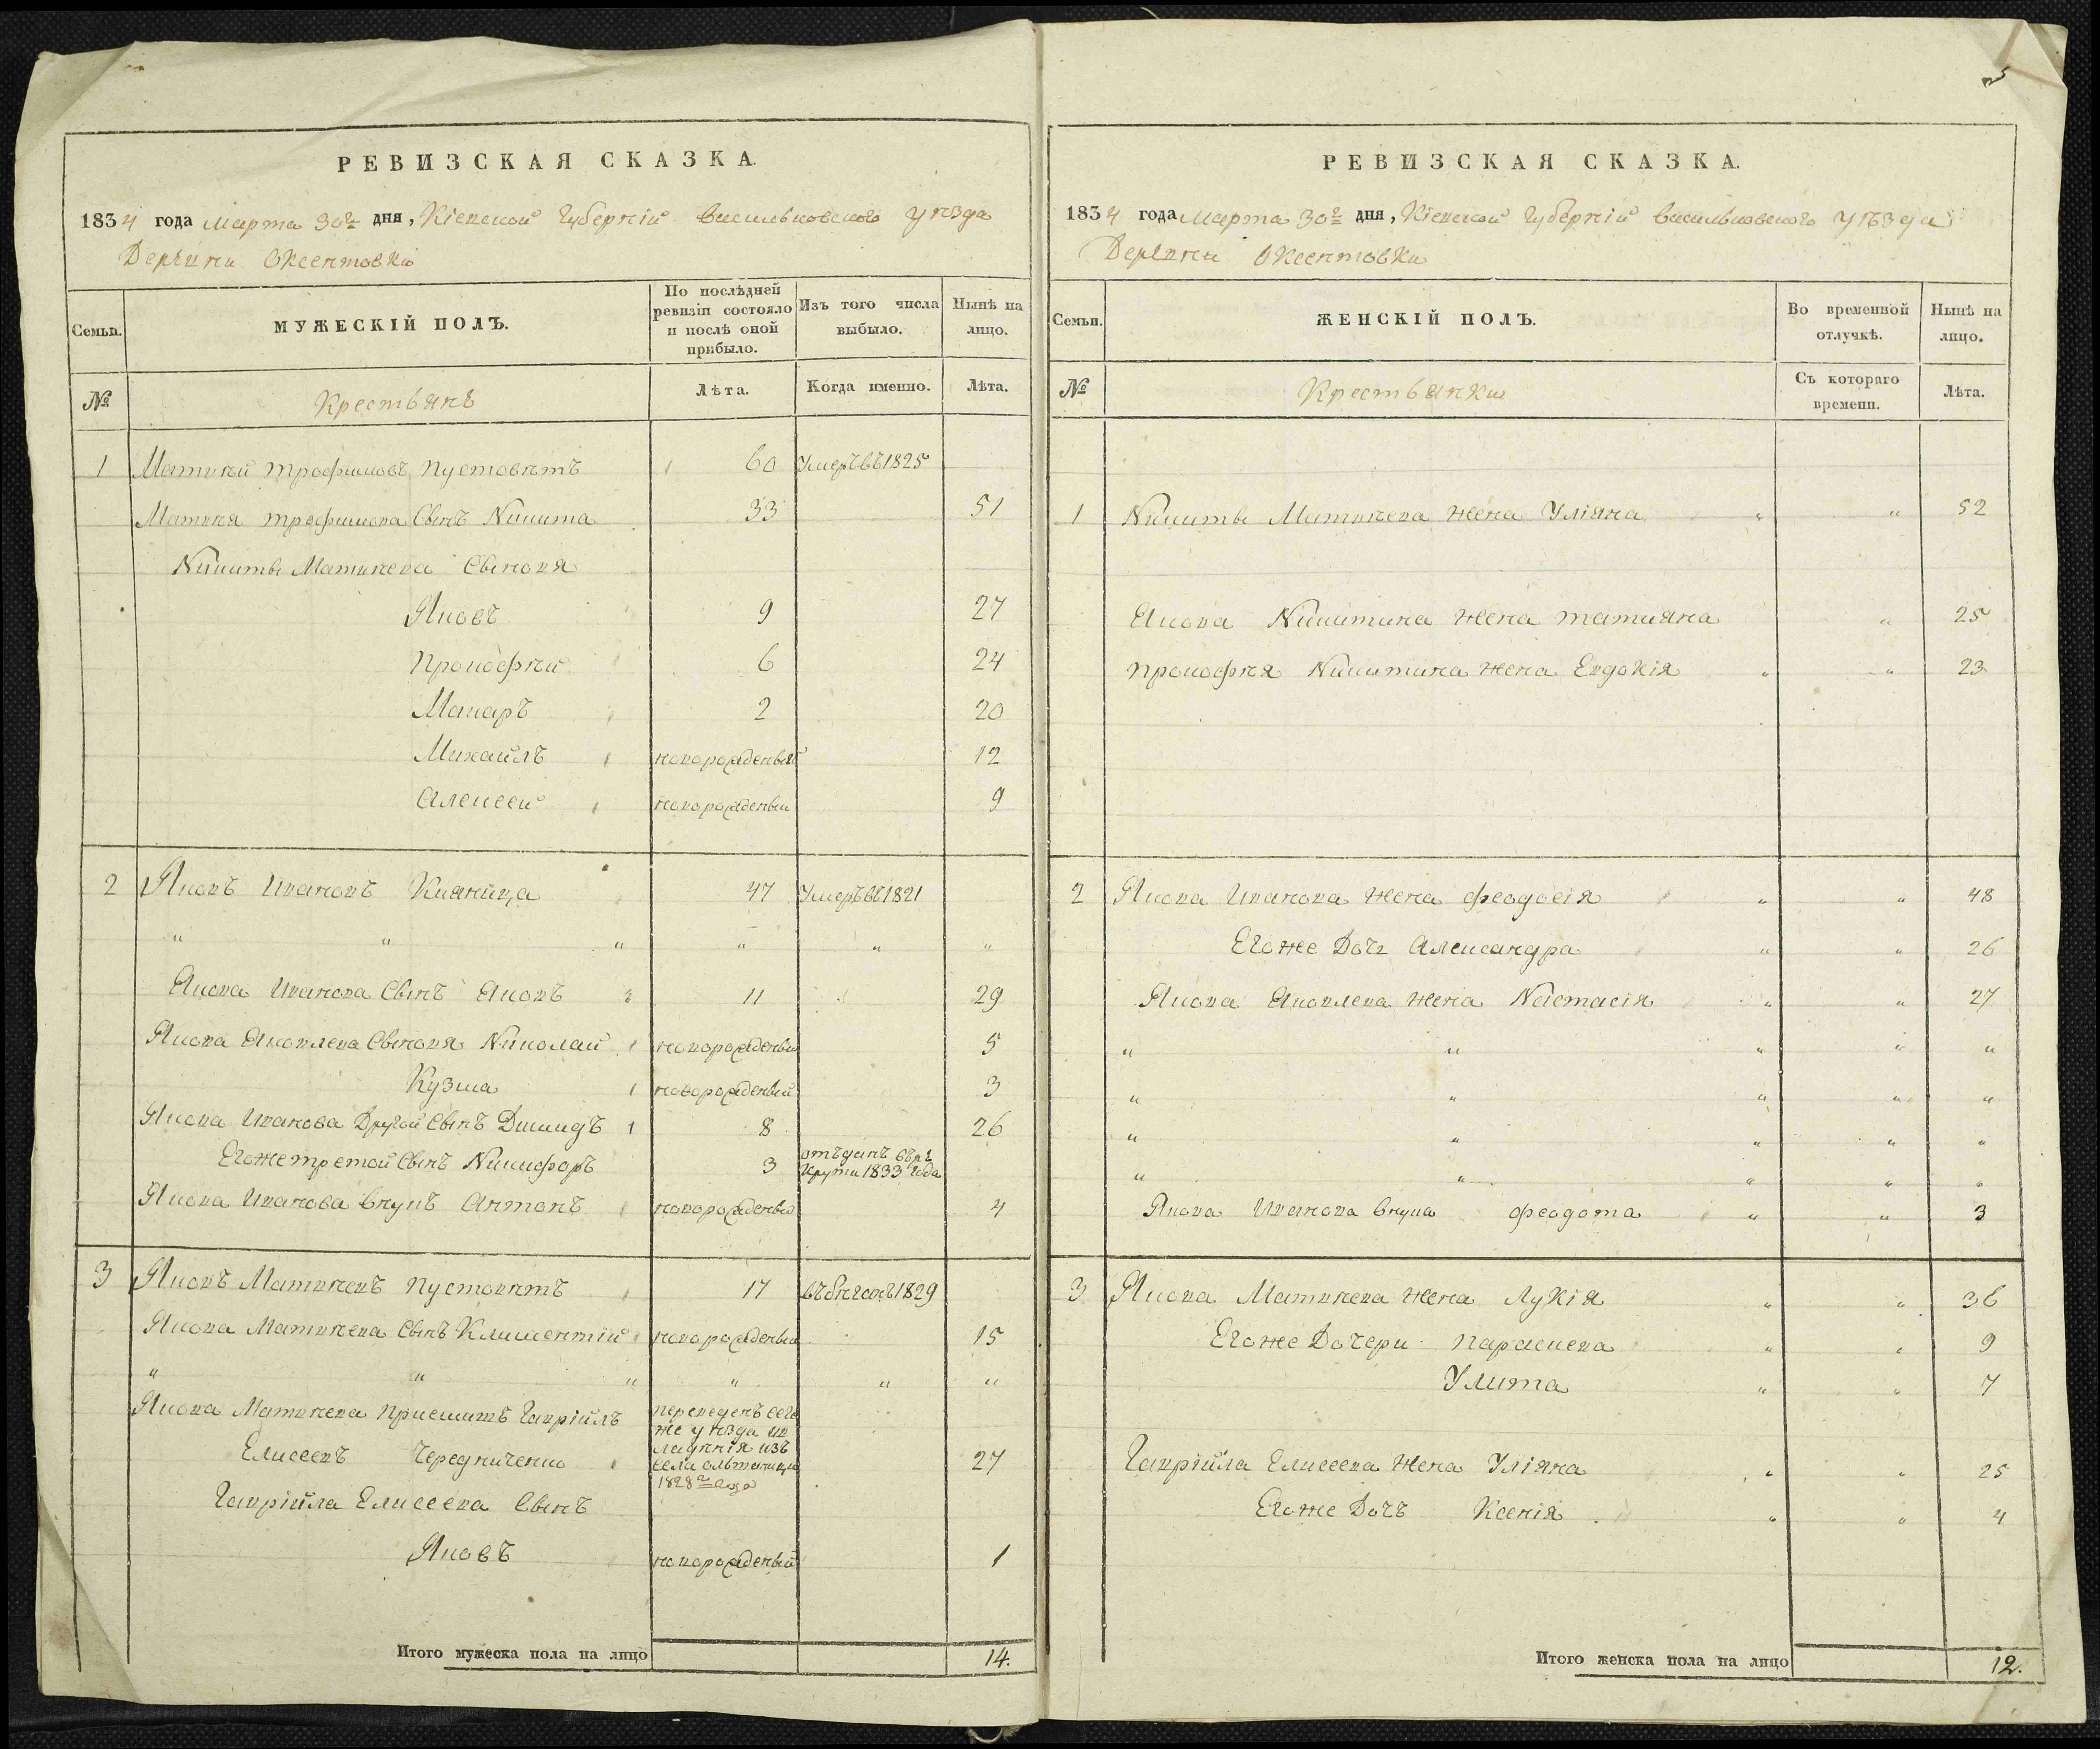 РЕВИЗСКАЯ СКАЗКА.
1834 года Марта 30го дня, Кіевской Губерніи Васильковского уѣзда
Деревни Оксентовки
Семьи.
МУЖЕСКІЙ ПОЛЪ.
По послѣдней ревизіи состояло и послѣ оной прибыло.
Изъ того числа выбыло.
Нынѣ на лицо.
№
Крестьянъ
Лѣта.
Когда именно.
Лѣта.
1 Матвѣй Трофимовъ Пустовѣтъ 60 Умеръ въ 1825
Матвѣя Трофимова Сынъ Никита 33 51
Никиты Матвѣева Сыновя
Яковъ 9 27
Прокофѣй 6 24
Макаръ 2 20
Михайлъ новорожденый 12
Алексей новорожденый 9
2 Яковъ Ивановъ Кияница 47 Умеръ въ 1821
" " " " " "
Якова Иванова Сынъ Яковъ 11 29
Якова Яковлева Сыновя Николай новорожденый 5
Кузма новорожденый 3
Якова Иванова Другой Сынъ Димидъ 8 26
Егоже третой Сынъ Никифоръ 3 отъданъ въ рекруты 1833 года
Якова Иванова внукъ Антонъ новорожденый 4
3 Яковъ Матвѣевъ Пустовѣтъ 17 въ бѣгахъ 1829
Якова Матвѣева Сынъ Климентій новорожденый 15
" " " " " "
Якова Матвѣева Приемитъ Гаврійлъ
Елисеевъ Чередниченко 27
переведенъ сего
же уѣзда
изъ
села
1828го года
Гаврійла Елисеева Сынъ
Яковъ новорожденый 1
Итого мужеска пола на лицо 14.
РЕВИЗСКАЯ СКАЗКА.
1834 года Марта 30го дня, Кіевской Губерніи Васильковского уѣзда
Деревни Оксентовки
Семьи.
ЖЕНСКІЙ ПОЛЪ.
Во временной отлучкѣ.
Нынѣ на лицо.
№
Крестьянки
Съ котораго времени.
Лѣта.
1 Никиты Матвѣева жена Уліяна " " 52
Якова Никитина жена Татияна " 25
Прокофѣя Никитина жена Евдокія " " 23
2 Якова Иванова жена Феодосія " " 48
Егоже Дочь Александра " " 26
Якова Яковлева жена Настасія " " 27
" " " " "
" " " " "
" " " " "
" " " " "
Якова Иванова внука Феодота " " 3
3 Якова Матвѣева жена Лукія " " 36
Егоже Дочери Параскева " " 9
Улита " " 7
Гаврійла Елисеева жена Уліяна " " 25
Егоже Дочъ Ксенія " " 4
Итого женска пола на лицо 12.